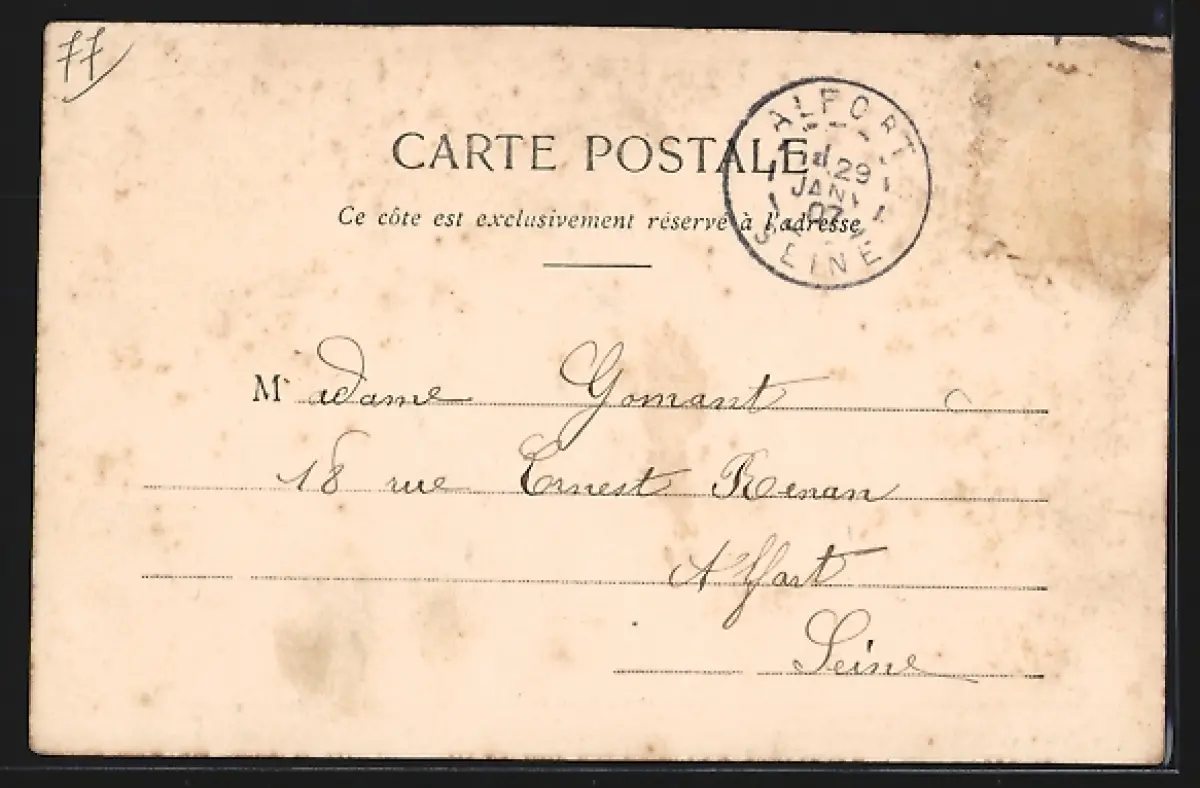 77
CARTE POSTALE
Ce côte est exclusivement réservé à l'adresse
ALFORT
29
JANV
07
SEINE
M adame Gomant
18 rue Ernest Renan
Alfort
Seine